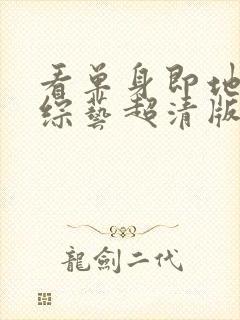 看单身即地
综藝超清版
龍劍二代